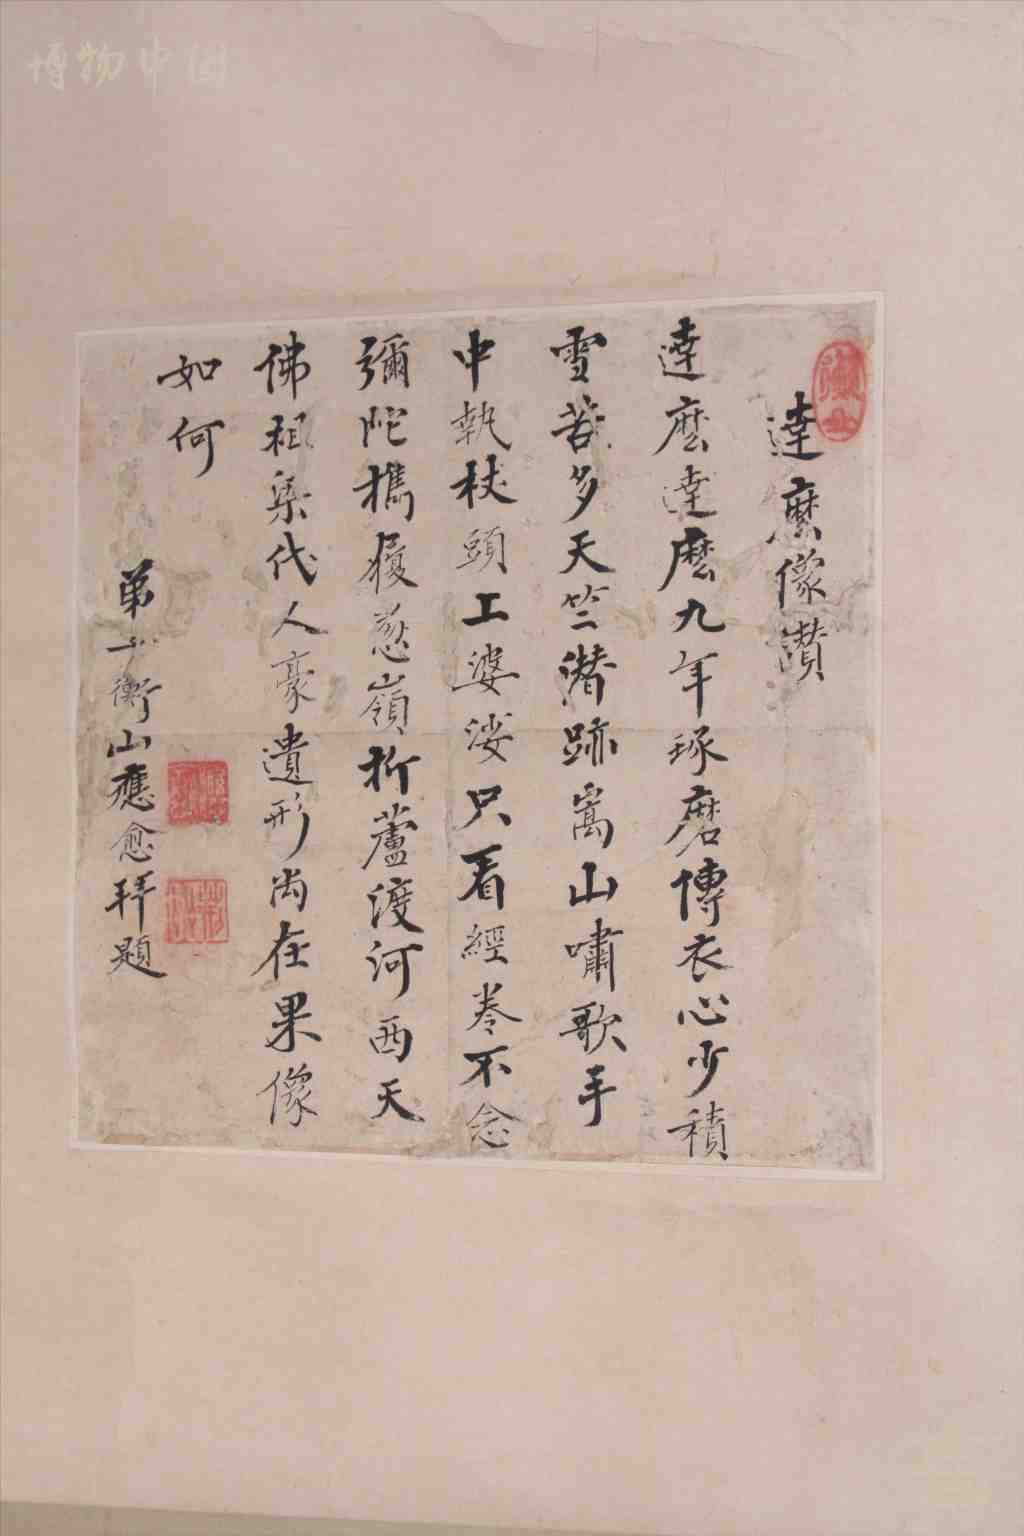 博物中国
達麽像讃
達麽達麽九年琢磨傳衣心少積
雪苦多天竺潜跡嵩山嘯歌手
中執杖頭工婆娑只看經卷不念
彌陀携履葱嶺折蘆渡河西天
佛祖梁代人豪遺形尚在果像
如何
弟子衡山應愈拜題